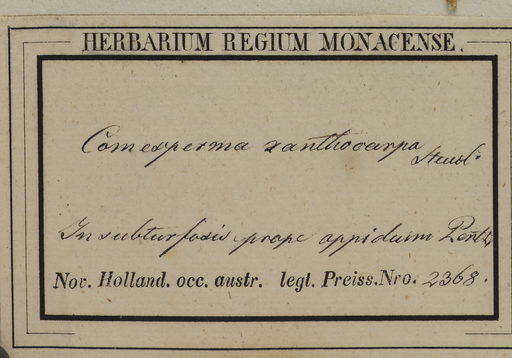 HERBARIUM REGIUM MONACENSE.
Comesperma xanthocarpa Steud.
In subturfosis prope oppidum Perth
Nov. Holland. occ. austr. legt. Preiss. Nro. 2368.